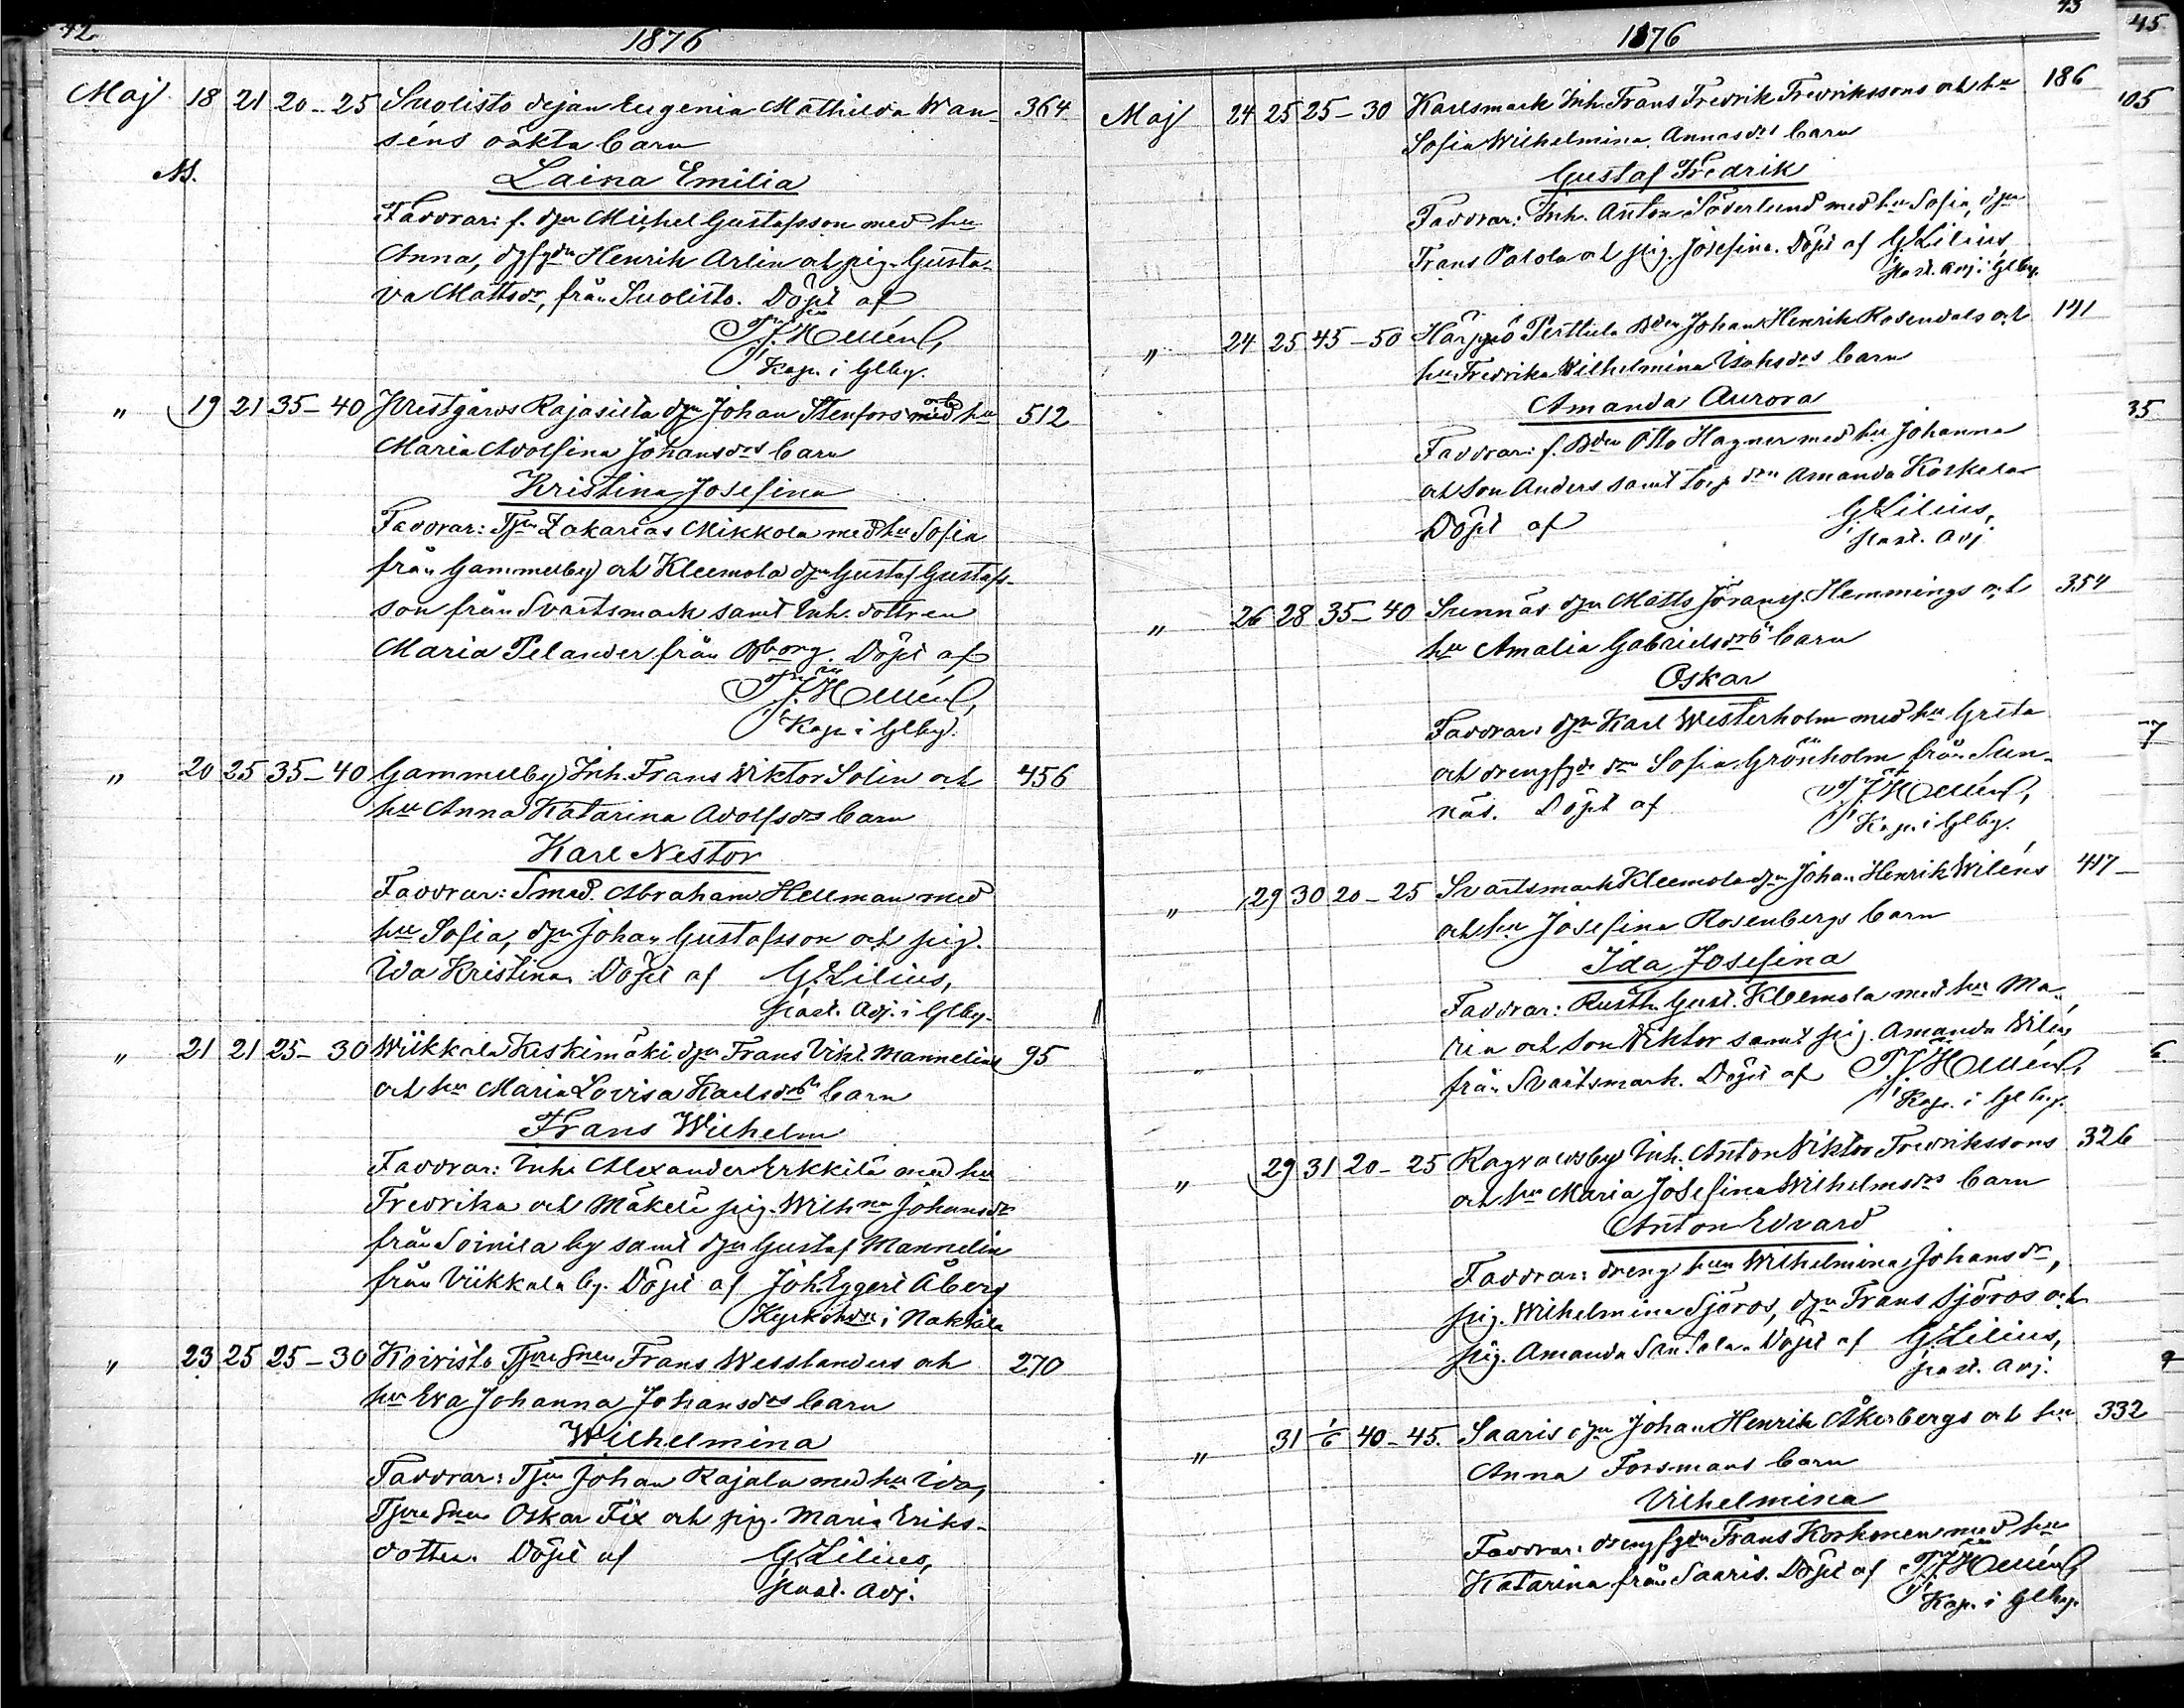 42
1876
Maj 18 21 20-25 Suolisto dejan Eugenia Mathilda Wan- 364
séns oäkta barn
N.
Laina Emilia
Faddrar: f. djn Michel Gustafsson med hu
Anna, Henrik Arlin och pig. Gusta-
va Mattsdr, från Suolisto. Döpt af
Kap. i Glby.
" 19 21 35-40 Krestgårds Rajasilta djn Johan Stenfors och hu 512
Maria Adolfina Johansdrs barn
Kristina Josefina
Faddrar: Tjn Zakarias Mikkola med hu Sofia
från Gammelby och Kleemola djn Gustaf Gustafs-
son från Svartsmark samt Inh. dottren
Maria Pelander från Bborg. Döpt af
Kap. i Glby.
" 20 25 35-40 Gammelby Inh. Frans Wiktor Solin och 456
hu Anna Katarina Adolfsdrs barn
Karl Nestor
Faddrar: Smed. Abraham Hellman med
hu Sofia, djn Johan Gustafsson och pig.
Ida Kristina. Döpt af G. Lilius,
past. Adj. i Glby.
" 21 21 25-30 Wiikkala Keskimäki djn Frans Vikt. Mannelins 95
och hu Maria Lovisa Karlsdrs barn
Frans Wilhelm
Faddrar: Inh. Alexander Erkkilä med hu
Fredrika och Mäkelä pig. Wilhna Johansdr
från Soinila by samt djn Gustaf Mannelin
från Viikkala by. Döpt af Joh. Eggert Åberg
Kyrkohde i Nakkila
" 23 25 25-30 Koivisto Frans Wesslanders och 270
hu Eva Johanna Johansdrs barn
Wilhelmina
Faddrar: Tjn Johan Rajala med hu Ida,
Oskar Fix och pig. Maria Eriks-
dotter. Döpt af G. Lilius,
past. Adj.
43
1876
Maj 24 25 25-30 Karlsmark Inh. Frans Fredrik Fredrikssons och hu 186
Sofia Wilhelmina Annasdrs barn
Gustaf Fredrik
Faddrar: Inh. Anton Söderlund med hu Sofia, djn
Frans Palola och pig. Josefina. Döpt af G. Lilius,
past. Adj. i Glby.
" 24 25 45-50 Härpö Perttula Bden Johan Henrik Rosendals och 141
hu Fredrika Wilhelmina Isaksdrs barn
Amanda Aurora
Faddrar: f. Bden Otto Hagner med hu Johanna
och Son Anders samt Amanda Koskela
Döpt af G. Lilius,
past. Adj
" 26 28 35-40 Sunnäs djn Matts Göransf. Hemmings och 354
hu Amalia Gabrielsdrs barn
Oskar
Faddrar: djn Karl Westerholm med hu Greta
och Sofia Grönholm från Sun-
näs. Döpt af
Kap. i Glby.
" 29 30 20-25 Svartsmark Kleemola djn Johan Henrik Wiléns 417
och hu Josefina Rosenbergs barn
Ida Josefina
Faddrar: Rusth. Gust. Kleemola med hu Ma-
ria och Son Viktor samt pig. Amanda Wilén
från Svartsmark. Döpt af
Kap. i Glby.
" 29 31 20-25 Ragvaldsby Inh. Anton Viktor Fredrikssons 326
och hu Maria Josefina Wilhelmsdrs barn
Anton Edvard
Faddrar: dreng hun Wilhelmina Johansdr,
pig. Wilhelmina Sjöros, djn Frans Sjöros och
pig. Amanda Santala. Döpt af G. Lilius,
past. Adj.
" 31 1/6 40-45 Saaris djn Johan Henrik Åkerbergs och hu 332
Anna Forsmans barn
Vilhelmina
Faddrar: Frans Korkonen med hu
Katarina från Saaris. Döpt af
Kap. i Glby.
45
105
35
7